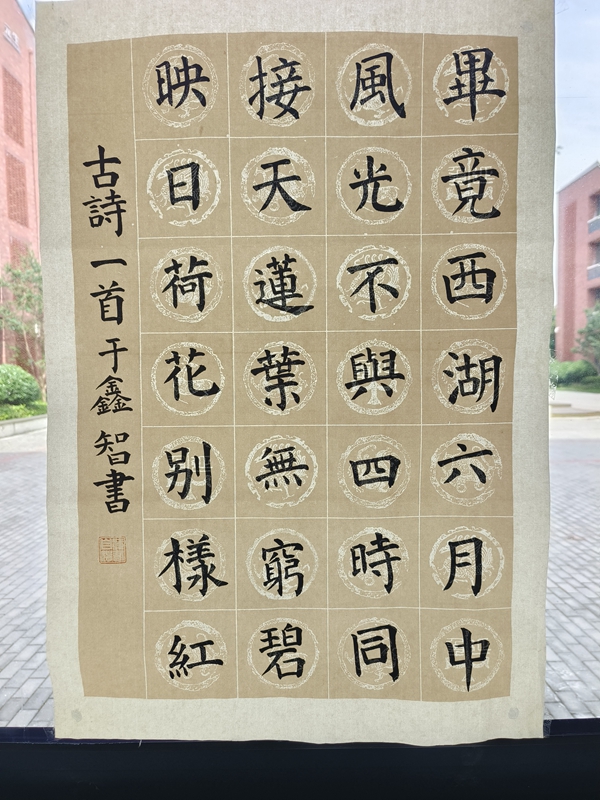 畢竟西湖六月中
風光不與四時同
接天蓮葉無窮碧
映日荷花别樣紅
古詩一首于鑫智書